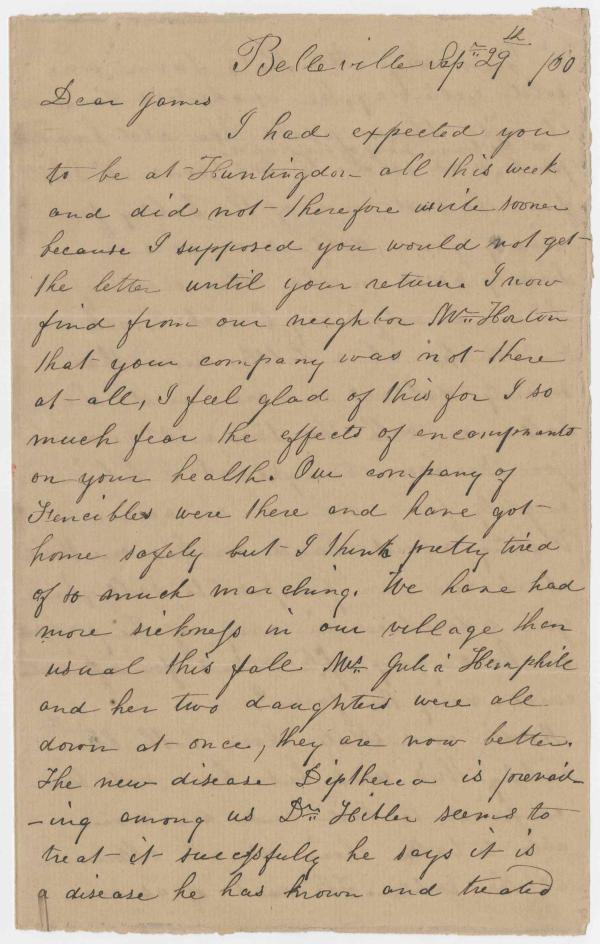 Belleville Sepr 29th /60
Dear James
I had expected you
to be at Huntingdon all this week
and did not therefore write sooner
because I supposed you would not get
the letter until your return. I now
find from our neighbor Mr Horton
that your company was not there
at all, I feel glad of this for I so
much fear the effects of encampments
on your health. Our company of
Fencibles were there and have got
home safely but I think pretty tired
of so much marching. We have had
more sickness in our village than
usual this fall Mrs Julia Hemphill
and her two daughters were all
down at once, they are now better.
The new disease Dipthera is prevail-
-ing among us Dr Hibler seems to
treat it sucessfully he says it is
a disease he has known and treated